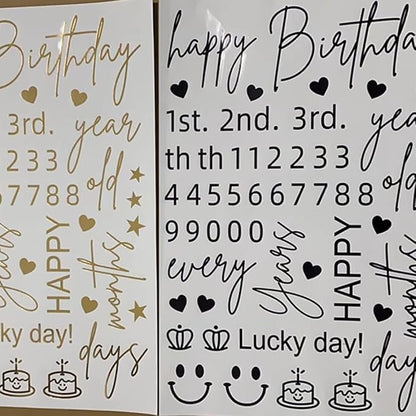 Birthday
3rd. year
2 2 3 3
6 7 7 8 8 old
years HAPPY months
ky day!
days
happy Birthda
1st. 2nd. 3rd. yea
th th 1 1 2 2 3 3
4 4 5 5 6 6 7 7 8 8 old
9 9 0 0 0 0
every years HAPPY months
Lucky day!
days